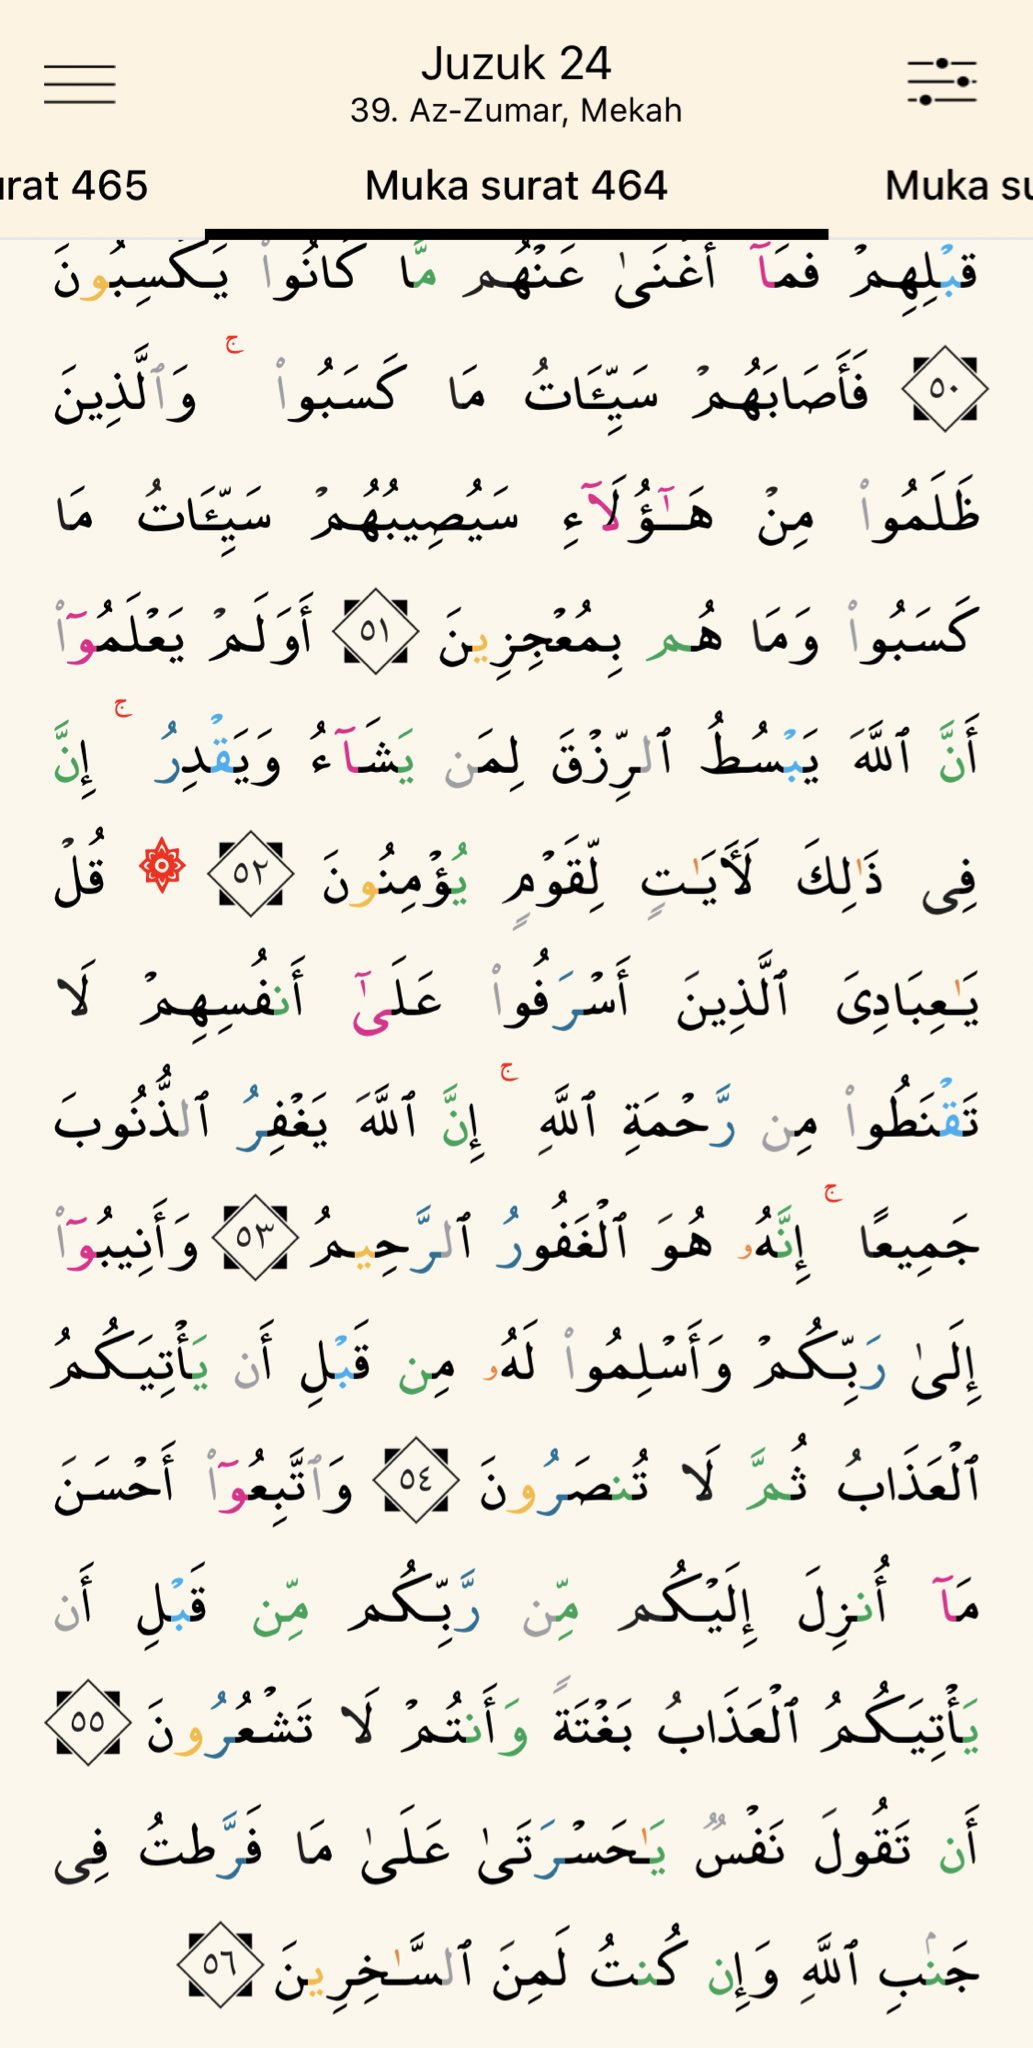 Juzuk 24
39. Az-Zumar, Mekah
urat 465 Muka surat 464 Muka su
قَبْلِهِمْ فَمَآ أَغْنَىٰ عَنْهُم مَّا كَانُوا۟ يَكْسِبُونَ
٥٠ فَأَصَابَهُمْ سَيِّـَٔاتُ مَا كَسَبُوا۟ ۚ وَٱلَّذِينَ
ظَلَمُوا۟ مِنْ هَـٰٓؤُلَآءِ سَيُصِيبُهُمْ سَيِّـَٔاتُ مَا
كَسَبُوا۟ وَمَا هُم بِمُعْجِزِينَ ٥١ أَوَلَمْ يَعْلَمُوٓا۟
أَنَّ ٱللَّهَ يَبْسُطُ ٱلرِّزْقَ لِمَن يَشَآءُ وَيَقْدِرُ ۚ إِنَّ
فِى ذَٰلِكَ لَـَٔايَـٰتٍ لِّقَوْمٍ يُؤْمِنُونَ ٥٢ قُلْ
يَـٰعِبَادِىَ ٱلَّذِينَ أَسْرَفُوا۟ عَلَىٰٓ أَنفُسِهِمْ لَا
تَقْنَطُوا۟ مِن رَّحْمَةِ ٱللَّهِ ۚ إِنَّ ٱللَّهَ يَغْفِرُ ٱلذُّنُوبَ
جَمِيعًا ۚ إِنَّهُۥ هُوَ ٱلْغَفُورُ ٱلرَّحِيمُ ٥٣ وَأَنِيبُوٓا۟
إِلَىٰ رَبِّكُمْ وَأَسْلِمُوا۟ لَهُۥ مِن قَبْلِ أَن يَأْتِيَكُمُ
ٱلْعَذَابُ ثُمَّ لَا تُنصَرُونَ ٥٤ وَٱتَّبِعُوٓا۟ أَحْسَنَ
مَآ أُنزِلَ إِلَيْكُم مِّن رَّبِّكُم مِّن قَبْلِ أَن
يَأْتِيَكُمُ ٱلْعَذَابُ بَغْتَةً وَأَنتُمْ لَا تَشْعُرُونَ ٥٥
أَن تَقُولَ نَفْسٌ يَـٰحَسْرَتَىٰ عَلَىٰ مَا فَرَّطتُ فِى
جَنۢبِ ٱللَّهِ وَإِن كُنتُ لَمِنَ ٱلسَّـٰخِرِينَ ٥٦